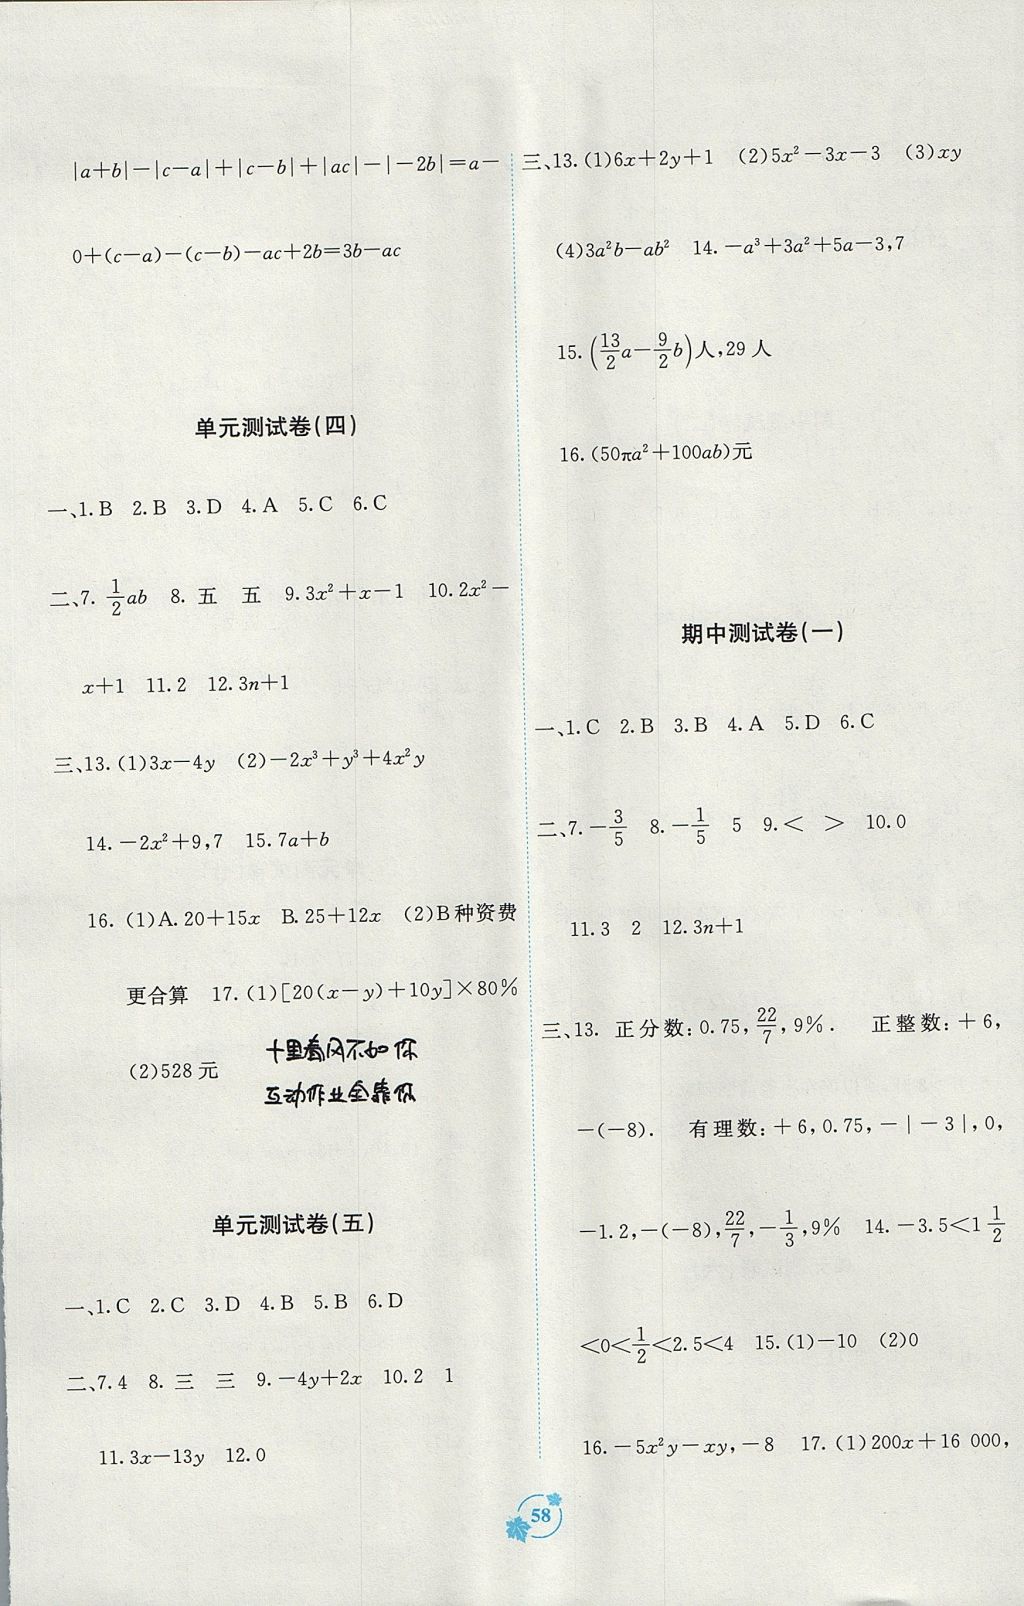 |a+b|-|c-a|+|c-b|+|ac|-|-2b|=a-
0+(c-a)-(c-b)-ac+2b=3b-ac
单元测试卷(四)
一、1.B 2.B 3.D 4.A 5.C 6.C
二、7. 1/2 ab 8. 五 五 9.3x²+x-1 10.2x²-
x+1 11.2 12.3n+1
三、13.(1)3x-4y (2)-2x³+y³+4x²y
14.-2x²+9,7 15.7a+b
16.(1)A.20+15x B.25+12x (2)B种资费
更合算 17.(1)[20(x-y)+10y]×80%
(2)528元
十里春风不如你
互动作业全靠你
单元测试卷(五)
一、1.C 2.C 3.D 4.B 5.B 6.D
二、7.4 8. 三 三 9.-4y+2x 10.2 1
11.3x-13y 12.0
三、13.(1)6x+2y+1 (2)5x²-3x-3 (3)xy
(4)3a²b-ab² 14.-a³+3a²+5a-3,7
15.(13/2 a-9/2 b)人,29人
16.(50πa²+100ab)元
期中测试卷(一)
一、1.C 2.B 3.B 4.A 5.D 6.C
二、7.-3/5 8.-1/5 5 9.< > 10.0
11.3 2 12.3n+1
三、13. 正分数:0.75,22/7,9%. 正整数:+6,
-(-8). 有理数:+6,0.75,-|-3|,0,
-1.2,-(-8),22/7,-1/3,9% 14.-3.5<1 1/2
<0<1/2<2.5<4 15.(1)-10 (2)0
16.-5x²y-xy,-8 17.(1)200x+16 000,
58